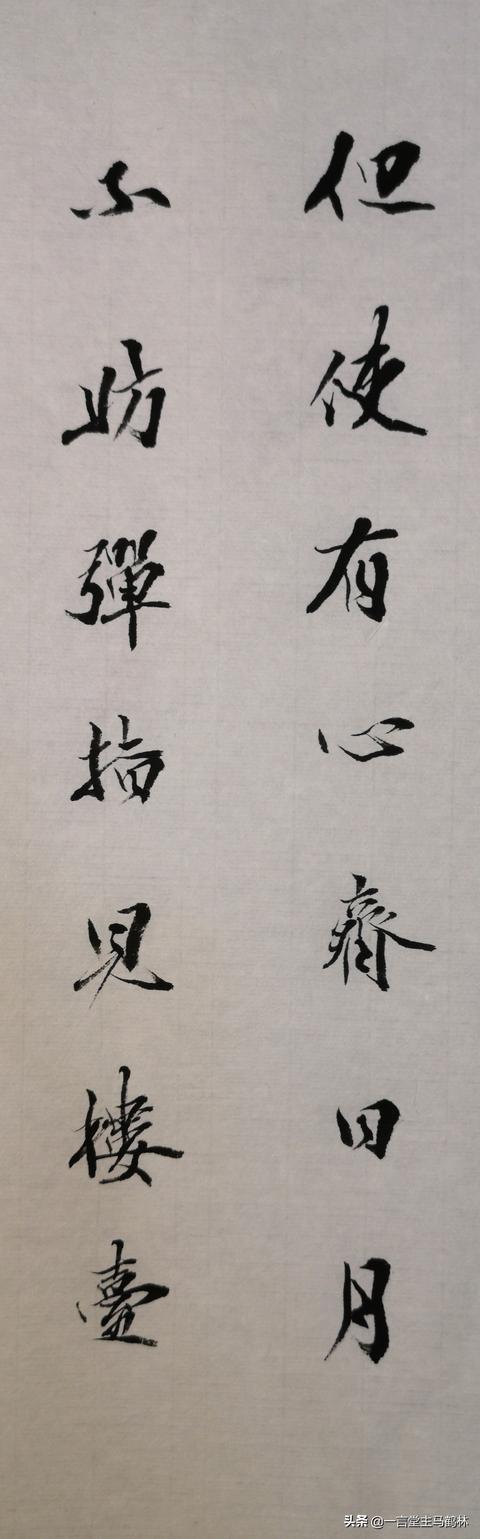 但使有心齊日月
不妨彈指見樓臺
头条 @一言堂主马鹤林